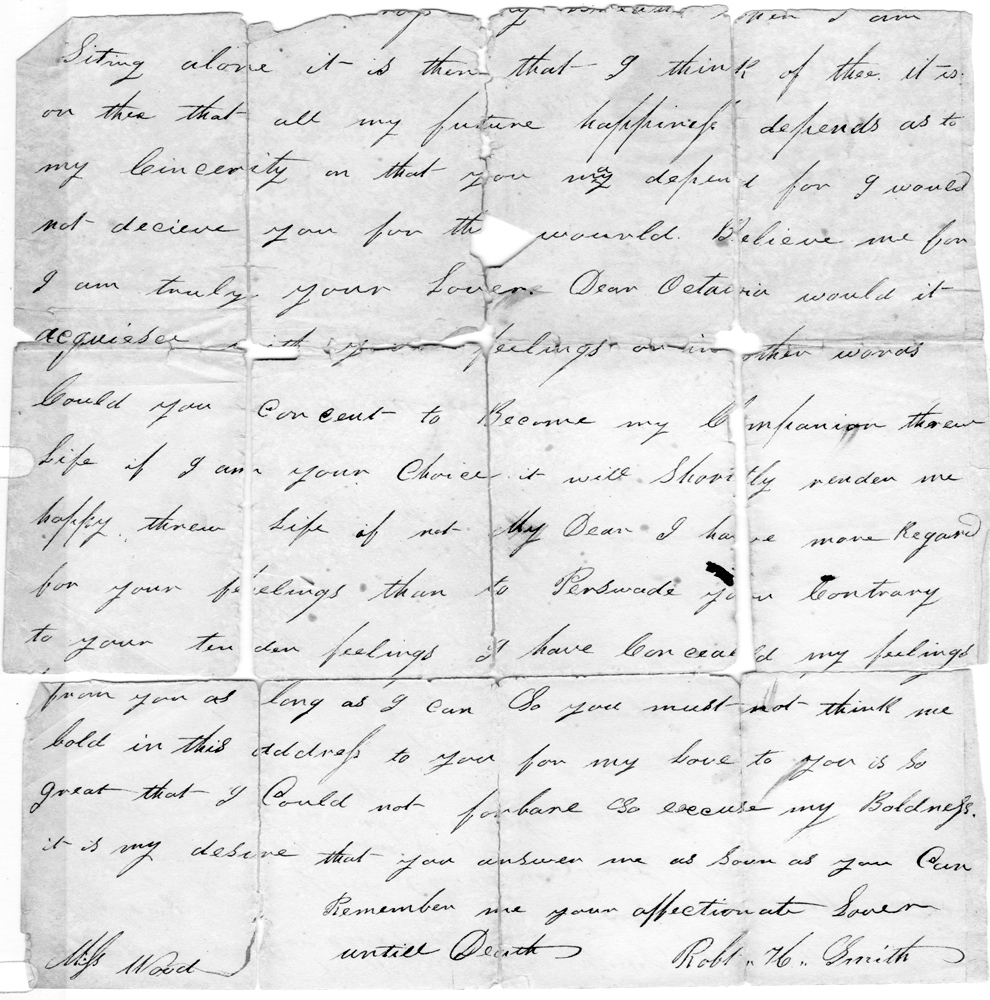 when I am
Siting alone it is then that I think of thee. it is
on thee that all my future happiness depends as to
my Cincerity on that you may depend for I would
not decieve you for th wourld. Believe me for
I am truly your Lover. Dear Octavia would it
acquiesce with your feelings or in other words
Could you Concent to Become my Companion threw
Life if I am your Choice it will Shortly render me
happy threw Life if not My Dear I have more Regard
for your feelings than to Perswade you Contrary
to your tender feelings I have Concealed my feelings
from you as long as I can So you must not think me
bold in this address to you for my Love to you is so
great that I Could not forbare So excuse my Boldness.
it is my desire that you answer me as Soon as you Can
Remember me your affectionate Lover
untill Death
Miss Wood Robt. H. Smith